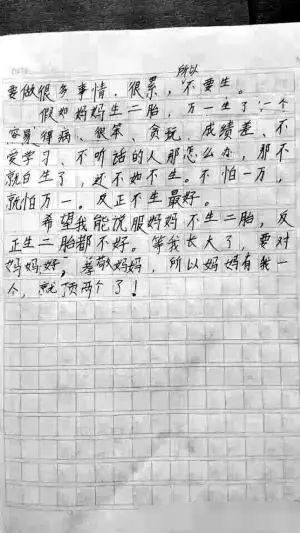 所以
要做很多事情，很累，不要生。
假如妈妈生二胎，万一生了一个
容易得病、很笨、贪玩、成绩差、不
爱学习、不听话的人那怎么办，那不
就白生了，还不如不生。不怕一万，
就怕万一。反正不生最好。
希望我能说服妈妈不生二胎，反
正生二胎都不好。等我长大了，要对
妈妈好，孝敬妈妈，所以妈妈有我一
个，就顶两个了！